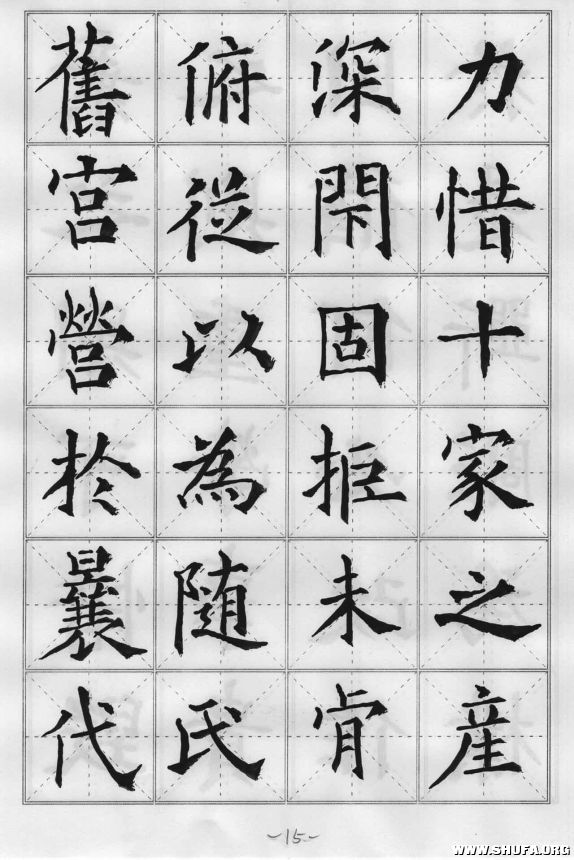 力惜十家之産
深閇固拒未肯
俯従以為随氏
舊宮營於曩代
-15-
WWW.SHUFA.ORG